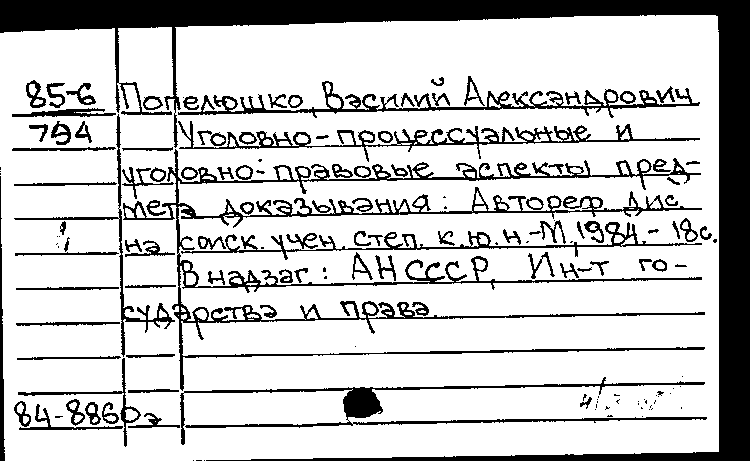 85-6 Попелюшко, Василий Александрович
794 Уголовно-процессуальные и
уголовно-правовые аспекты пред-
мета доказывания: Автореф. дис.
на соиск. учен. степ. к.ю.н.-М, 1984.- 18с.
В надзаг.: АН СССР, Ин-т го-
сударства и права.
84-8860а